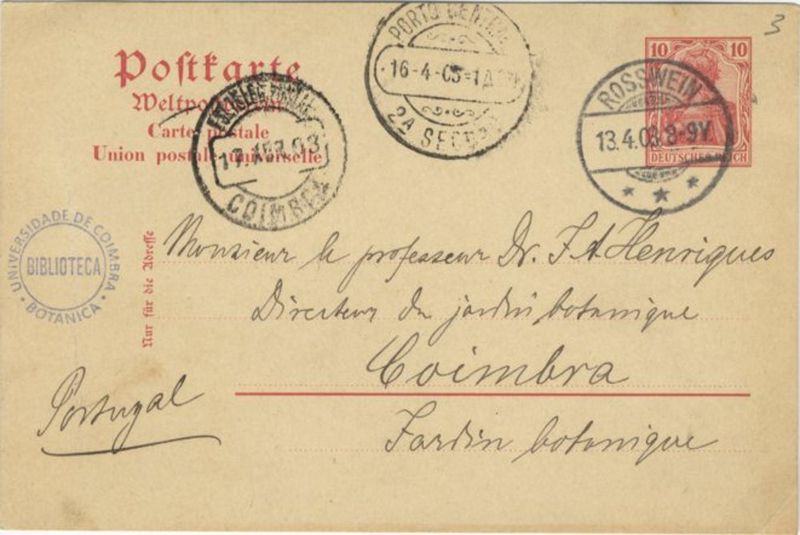 3
Postkarte
Weltpostverein
Carte postale
Union postale universelle
COIMBRA
PORTO CENTRAL
16-4-03
2A SECÇÃO
10 10
DEUTSCHES REICH
ROSSWEIN
13.4.03 8-9V
UNIVERSIDADE DE COIMBRA
BIBLIOTECA
BOTANICA
Nur für die Adresse
Monsieur le professeur Dr. J. A. Henriques
Directeur du jardin botanique
Coimbra
Portugal
Jardin botanique